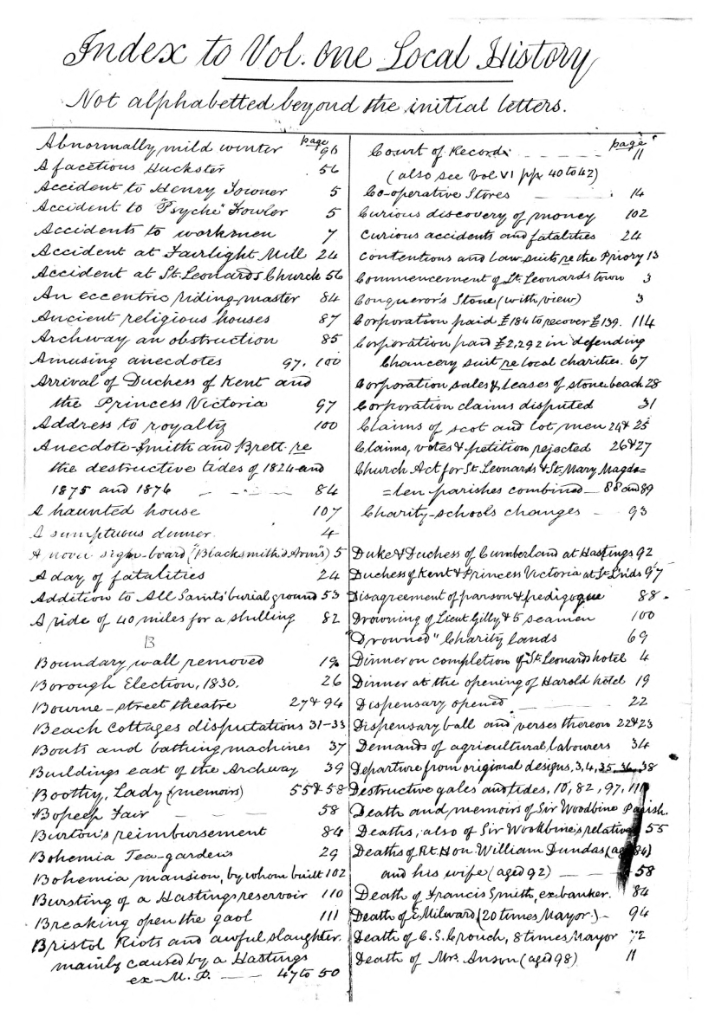 Index to Vol. One Local History
Not alphabetted beyond the initial letters.
page
Abnormally mild winter 96
A facetious Huckster 56
Accident to Henry Towner 5
Accident to "Psyche" Fowler 5
Accidents to workmen 7
Accident at Fairlight Mill 24
Accident at St. Leonards Church 56
An eccentric riding-master 84
Ancient religious houses 87
Archway an obstruction 85
Amusing anecdotes 97, 100
Arrival of Duchess of Kent and
the Princess Victoria 97
Address to royalty 100
Anecdote-Smith and Brett re
the destructive tides of 1824 and
1875 and 1876 — — — 84
A haunted house 107
A sumptuous dinner 4
A novel sign-board ("Blacksmith's Arms") 5
A day of fatalities 24
Addition to All Saints' burial ground 53
A ride of 40 miles for a shilling 82
B
Boundary wall removed 19
Borough Election, 1830. 26
Bourne-street theatre 27 & 94
Beach cottages disputations 31-33
Boats and bathing machines 37
Buildings east of the Archway 39
Boothy, Lady (memoirs) 55 & 58
Bopeep Fair — — 58
Burton's reimbursement 84
Bohemia Tea-gardens 29
Bohemia mansion, by whom built 102
Bursting of a Hastings reservoir 110
Breaking open the gaol 111
Bristol Riots and awful slaughter
mainly caused by a Hastings
ex-M.P. — — 47 to 50
page
Court of Record — — — 11
(also see Vol VI pp 40 to 42)
Co-operative Stores — — — 14
Curious discovery of money 102
Curious accidents and fatalities 24
Contentions and Law suits re the Priory 13
Commencement of St. Leonards town 3
Conqueror's Stone (with view) 3
Corporation paid £184 to recover £139. 114
Corporation paid £2,292 in defending
Chancery suit re local charities. 67
Corporation sales & leases of stone beach 28
Corporation claims disputed 31
Claims of scot and lot, men 24 & 25
Claims, votes & petition rejected 26 & 27
Church Act for St. Leonards & St. Mary Magda=
=len parishes combined — 88 and 89
Charity-schools changes — 93
Duke & Duchess of Cumberland at Hastings 92
Duchess of Kent & Princess Victoria at St. L'nds 97
Disagreement of parson & pedigogue 88.
Drowning of Lieut Gilly & 5 seamen 100
"Drowned" Charity lands 69
Dinner on completion of St. Leonards hotel 4
Dinner at the opening of Harold hotel 19
Dispensary opened — — — 22
Dispensary ball and verses thereon 22 & 23
Demands of agricultural labourers 34
Departure from original designs, 3, 4, 35, 36, 38
Destructive gales and tides, 10, 82, 97, 110
Death and memoirs of Sir Woodbine Parish
Deaths, also of Sir Woodbine's relatives 55
Deaths of Rt. Hon. William Dundas (aged 84)
and his wife (aged 92) — 58
Death of Francis Smith, ex-banker. 84
Death of E Milward (20 times Mayor) — 94
Death of C. S. Crouch, 8 times Mayor 72
Death of Mrs. Anson (aged 98) 11